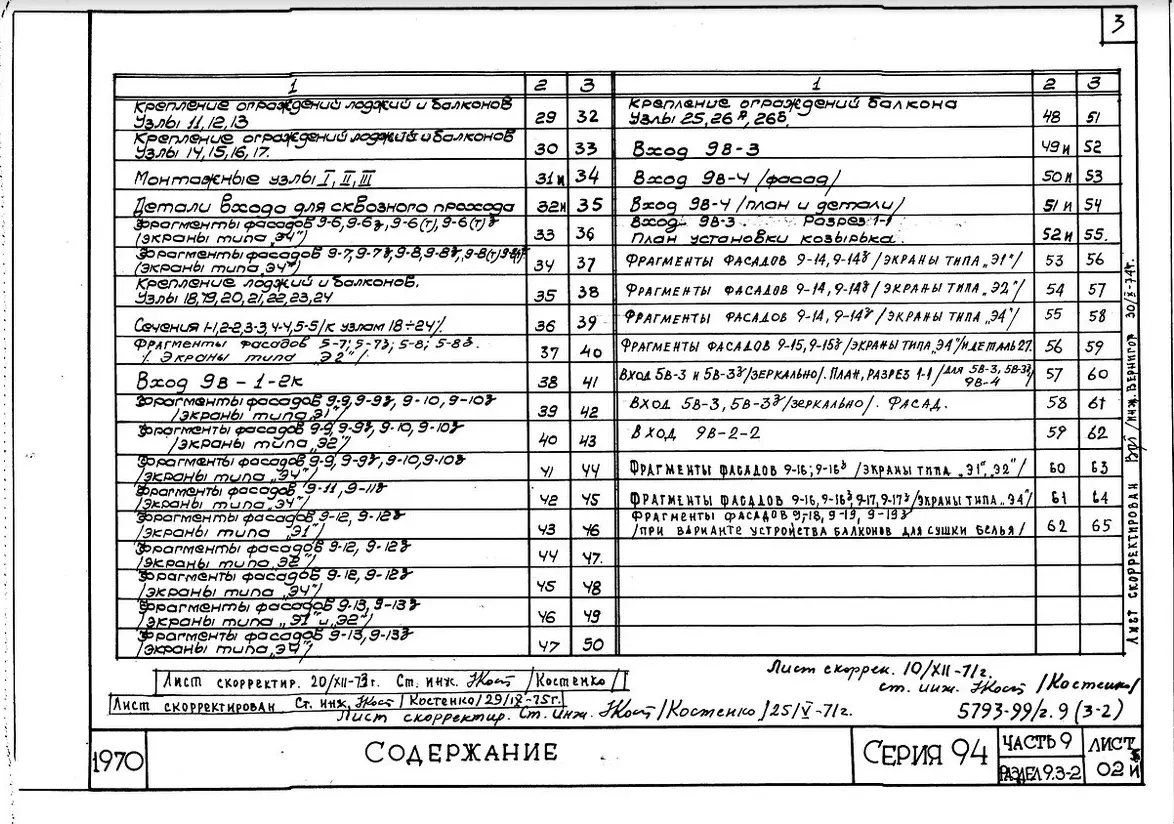 3
1 2 3 1 2 3
Крепление ограждений лоджий и балконов
Узлы 11, 12, 13 29 32
Крепление ограждений лоджий и балконов
Узлы 14, 15, 16, 17. 30 33
Монтажные узлы I, II, III 31и 34
Детали входа для сквозного прохода 32и 35
Фрагменты фасадов 9-6, 9-6з, 9-6(т), 9-6(т)з
/экраны типа „Э4"/ 33 36
Фрагменты фасадов 9-7, 9-7з, 9-8, 9-8з,
/экраны типа „Э4"/ 34 37
Крепление лоджий и балконов.
Узлы 18, 19, 20, 21, 22, 23, 24 35 38
Сечения 1-1, 2-2, 3-3, 4-4, 5-5 /к узлам 18÷24/. 36 39
Фрагменты фасадов 5-7; 5-7з; 5-8; 5-8з.
/Экраны типа „Э2"/ 37 40
Вход 9в-1-2к 38 41
Фрагменты фасадов 9-9, 9-9з, 9-10, 9-10з
/экраны типа „Э1"/ 39 42
Фрагменты фасадов 9-9, 9-9з, 9-10, 9-10з
/экраны типа „Э2"/ 40 43
Фрагменты фасадов 9-9, 9-9з, 9-10, 9-10з
/экраны типа „Э4"/ 41 44
Фрагменты фасадов 9-11, 9-11з
/экраны типа „Э4"/ 42 45
Фрагменты фасадов 9-12, 9-12з
/экраны типа „Э1"/ 43 46
Фрагменты фасадов 9-12, 9-12з
/экраны типа „Э2"/ 44 47.
Фрагменты фасадов 9-12, 9-12з
/экраны типа „Э4"/ 45 48
Фрагменты фасадов 9-13, 9-13з
/экраны типа „Э1" и „Э2"/ 46 49
Фрагменты фасадов 9-13, 9-13з
/экраны типа „Э4"/ 47 50
Крепление ограждений балкона
Узлы 25, 26а, 26б. 48 51
Вход 9в-3 49и 52
Вход 9в-4 /фасад/ 50и 53
Вход 9в-4 /план и детали/ 51и 54
Вход 9в-3. Разрез 1-1
План установки козырька. 52и 55.
Фрагменты фасадов 9-14, 9-14з /экраны типа „Э1"/ 53 56
Фрагменты фасадов 9-14, 9-14з /экраны типа „Э2"/ 54 57
Фрагменты фасадов 9-14, 9-14з /экраны типа „Э4"/ 55 58
Фрагменты фасадов 9-15, 9-15з /экраны типа „Э4"/ и деталь 27. 56 59
Вход 5в-3 и 5в-3з /зеркально/. План, разрез 1-1 /для 5в-3, 5в-3з, 9в-4/ 57 60
Вход 5в-3, 5в-3з /зеркально/. Фасад. 58 61
Вход 9в-2-2 59 62
Фрагменты фасадов 9-16; 9-16з /экраны типа „Э1", „Э2"/ 60 63
Фрагменты фасадов 9-16, 9-16з, 9-17, 9-17з /экраны типа „Э4"/ 61 64
Фрагменты фасадов 9-18, 9-19, 9-19з
/при варианте устройства балконов для сушки белья/ 62 65
Лист скорректирован /инж. Вернигор 30/X-74г.
Лист скорректир. 20/XII-73г. Ст. инж. /Костенко/
Лист скоррек. 10/XII-71г.
ст. инж. /Костенко/
Лист скорректирован Ст. инж. /Костенко/ 29/IX-75г.
Лист скорректир. Ст. инж. /Костенко/ 25/V-71г.
5793-99/г. 9 (3-2)
1970 Содержание Серия 94 Часть 9 Раздел 9.3-2 Лист 02и